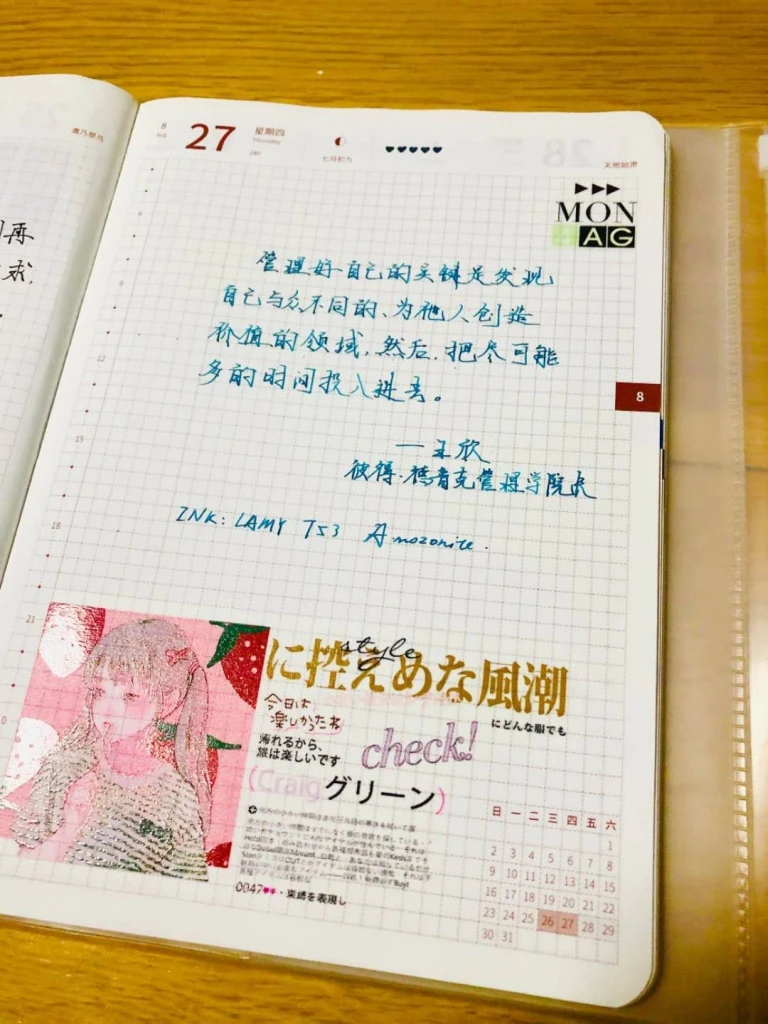 8
27
星期四
Thursday
七月初九
♥♥♥♥♥
28
天地始肃
▶▶▶
MON
+AG
再
求,
管理好自己的关键是发现
自己与众不同的、为他人创造
价值的领域,然后,把尽可能
多的时间投入进去。
——王欣
彼得·德鲁克管理学院院长
INK: LAMY T53 Amazonite.
8
12
15
18
21
0
style
に控えめな風潮
にどんな服でも
今日は
楽しかったね
濡れるから、
旅は楽しいです
check!
(Craig グリーン)
0047♥♥・束縛を表現し
日 一 二 三 四 五 六
1
2 3 4 5 6 7 8
9 10 11 12 13 14 15
16 17 18 19 20 21 22
23 24 25 26 27 28 29
30 31